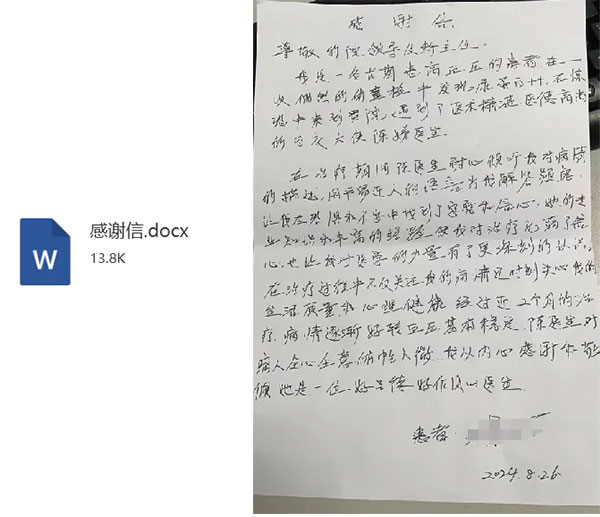 感谢信.docx
13.8K
W
感谢信
尊敬的院领导及科主任.
我是一名长期患高血压的患者在一
次偶然的体查检中发现尿蛋白++. 在惊
恐中来到贵院, 遇到了医术精湛. 医德高尚
的白衣天使陈婷医生.
在治疗期间陈医生耐心倾听我对病情
的描述, 用平易近人的语言为我解答疑惑.
让我在恐惧和不安中找到了安慰和信心. 她的专
业知识和丰富的经验, 使我对治疗充满了信
心, 也让我对医学的力量有了更深刻的认识.
在治疗过程中不仅关注我的病情还时刻关心我的
生活质量和心理健康 经过近2个月的治
疗. 病情逐渐好转血压基本稳定. 陈医生对
病人全心全意体贴入微 我从内心感谢和敬
佩她是一位好品德好作风的医生
患者:
2024.8.26